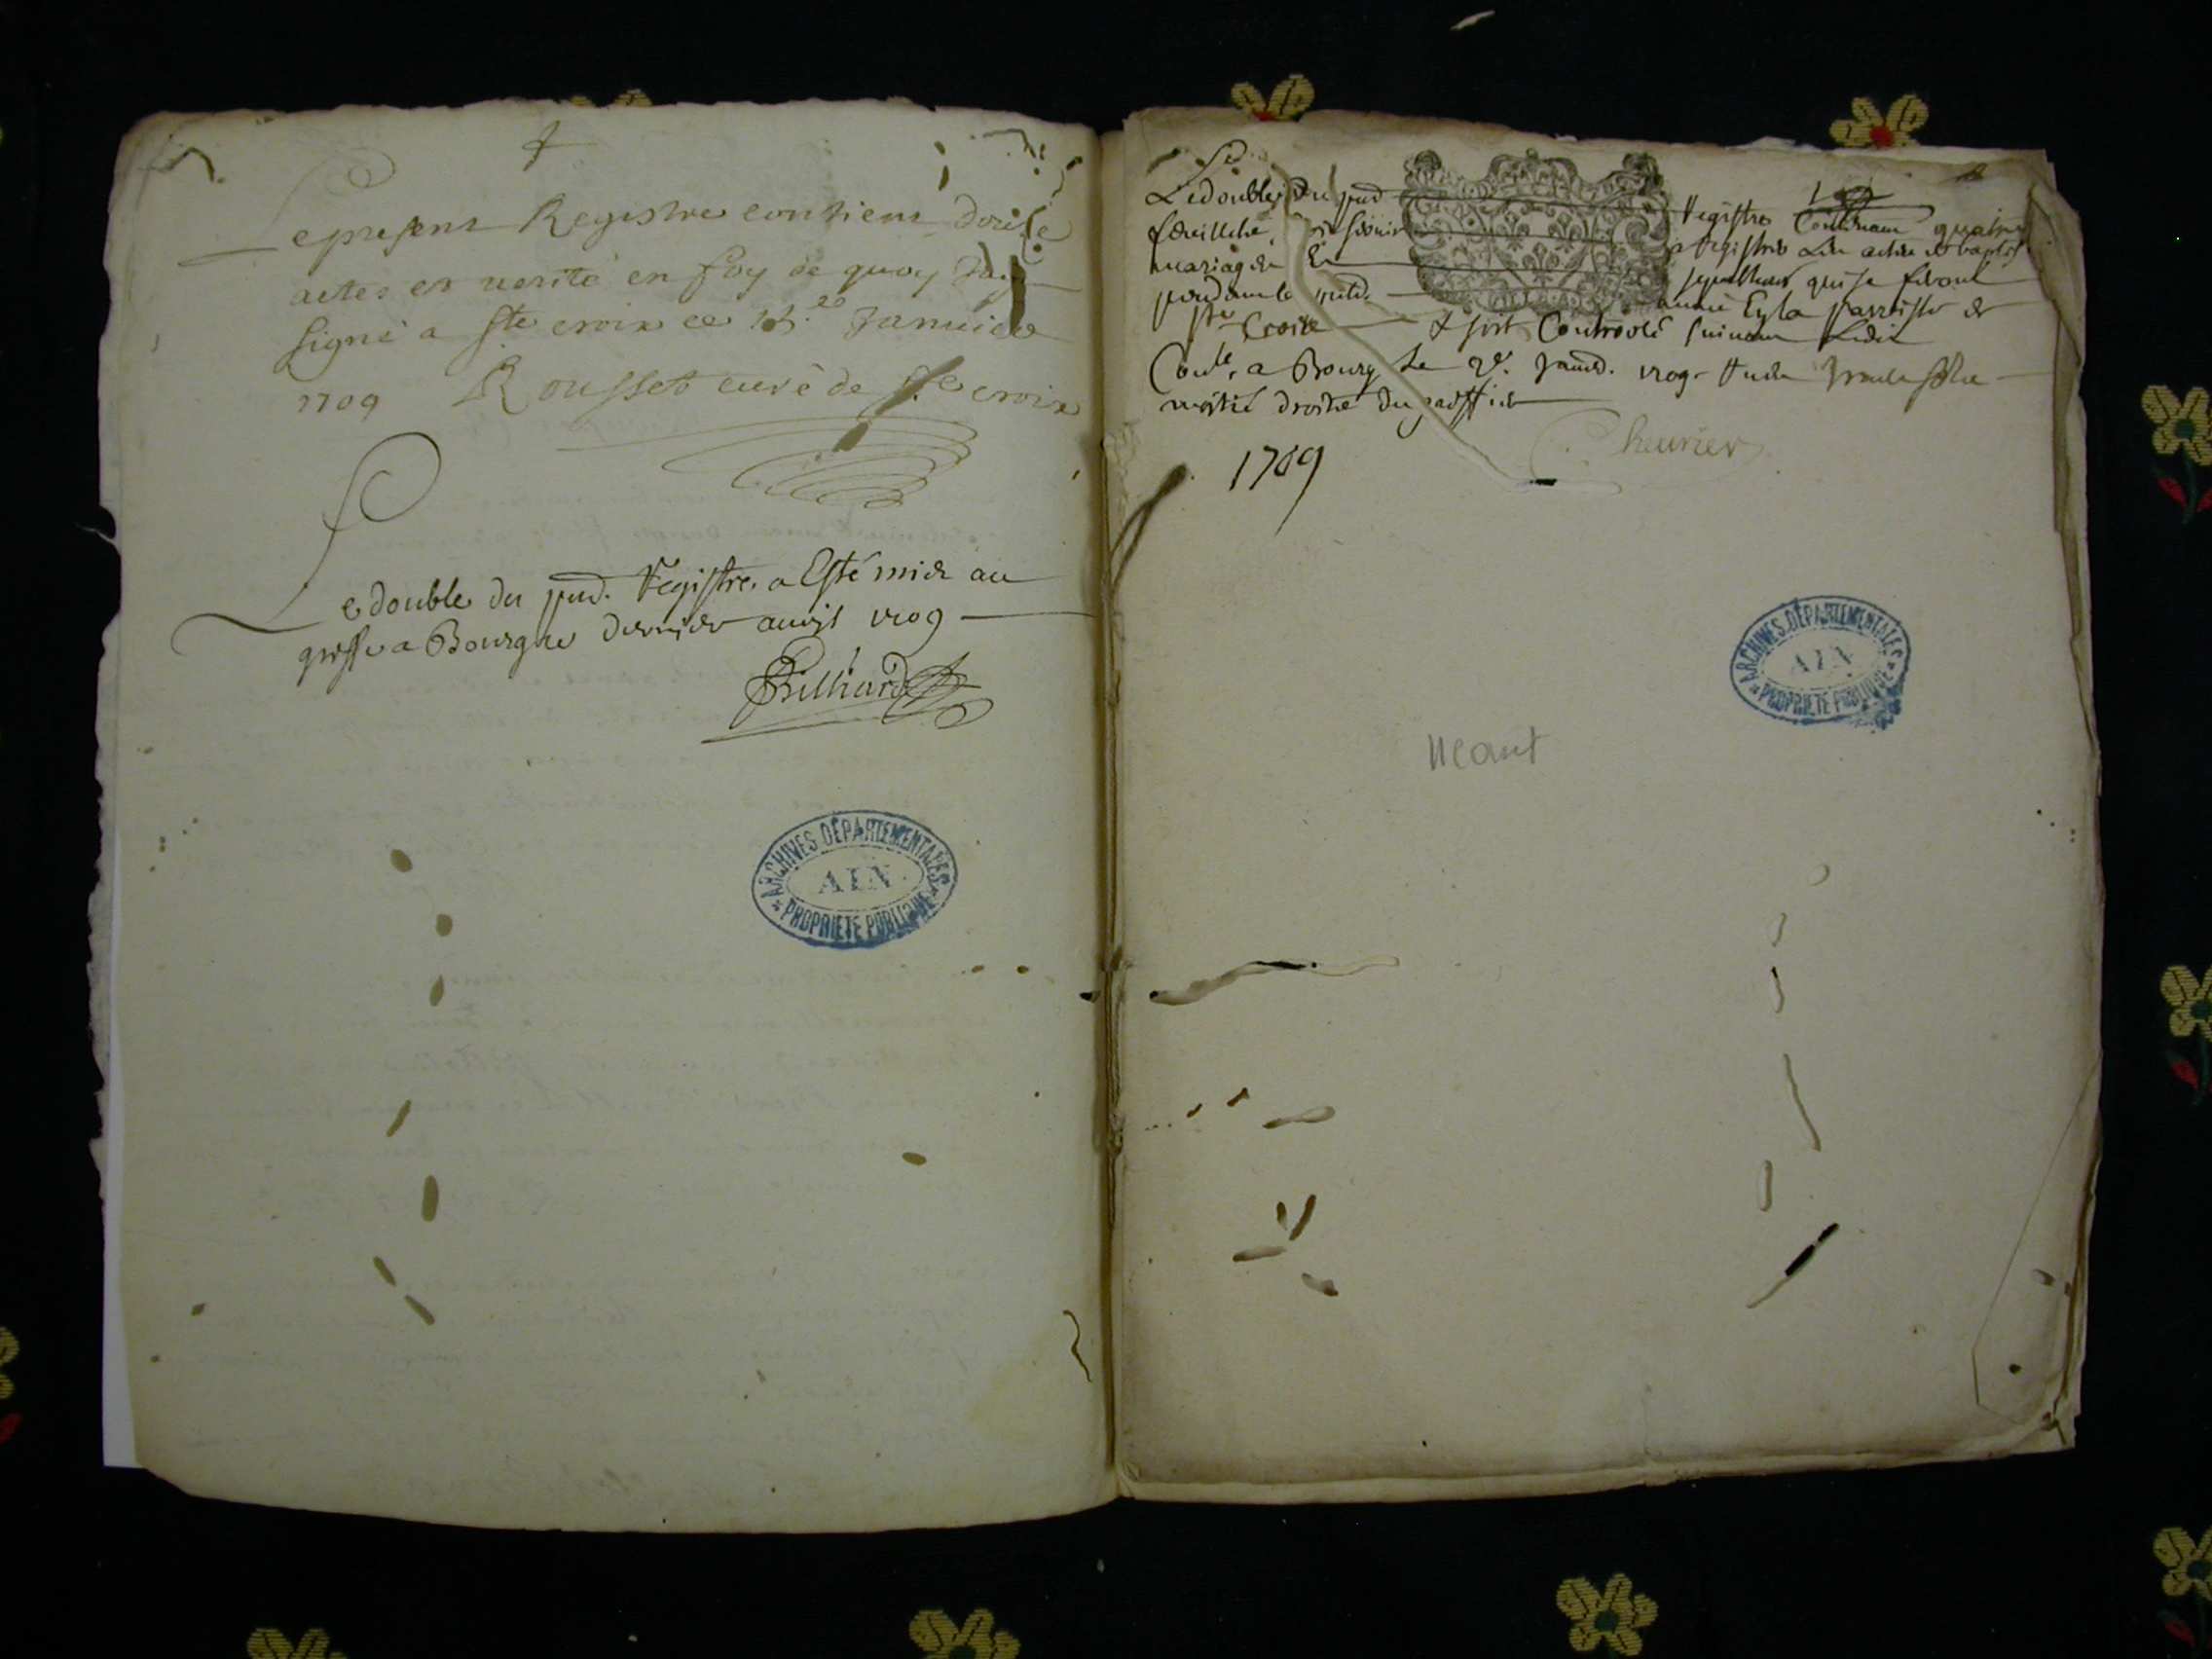 Le present Registre contient douze
actes en verité en foy de quoy Jay
signé a Ste croix ce Janvier
1709 Rousset curé de Ste croix
Le double du pnt. Registre a Esté mis au
greffe a Bourg le dernier avril 1709
Billiard
ARCHIVES DÉPARTEMENTALES
AIN
PROPRIÉTÉ PUBLIQUE
Le double du pnt Registre Contenant quatre
feuillets a Registrer Les actes de baptes
mariages Et sepultures qui se feront
pendant la année En la parroisse de
Ste Croix Et soit Controolé suivant Ledit
Conle. a Bourg Le Janv. 1709
moitié droits du
Cheurier
1709
ARCHIVES DÉPARTEMENTALES
AIN
PROPRIÉTÉ PUBLIQUE
Neant